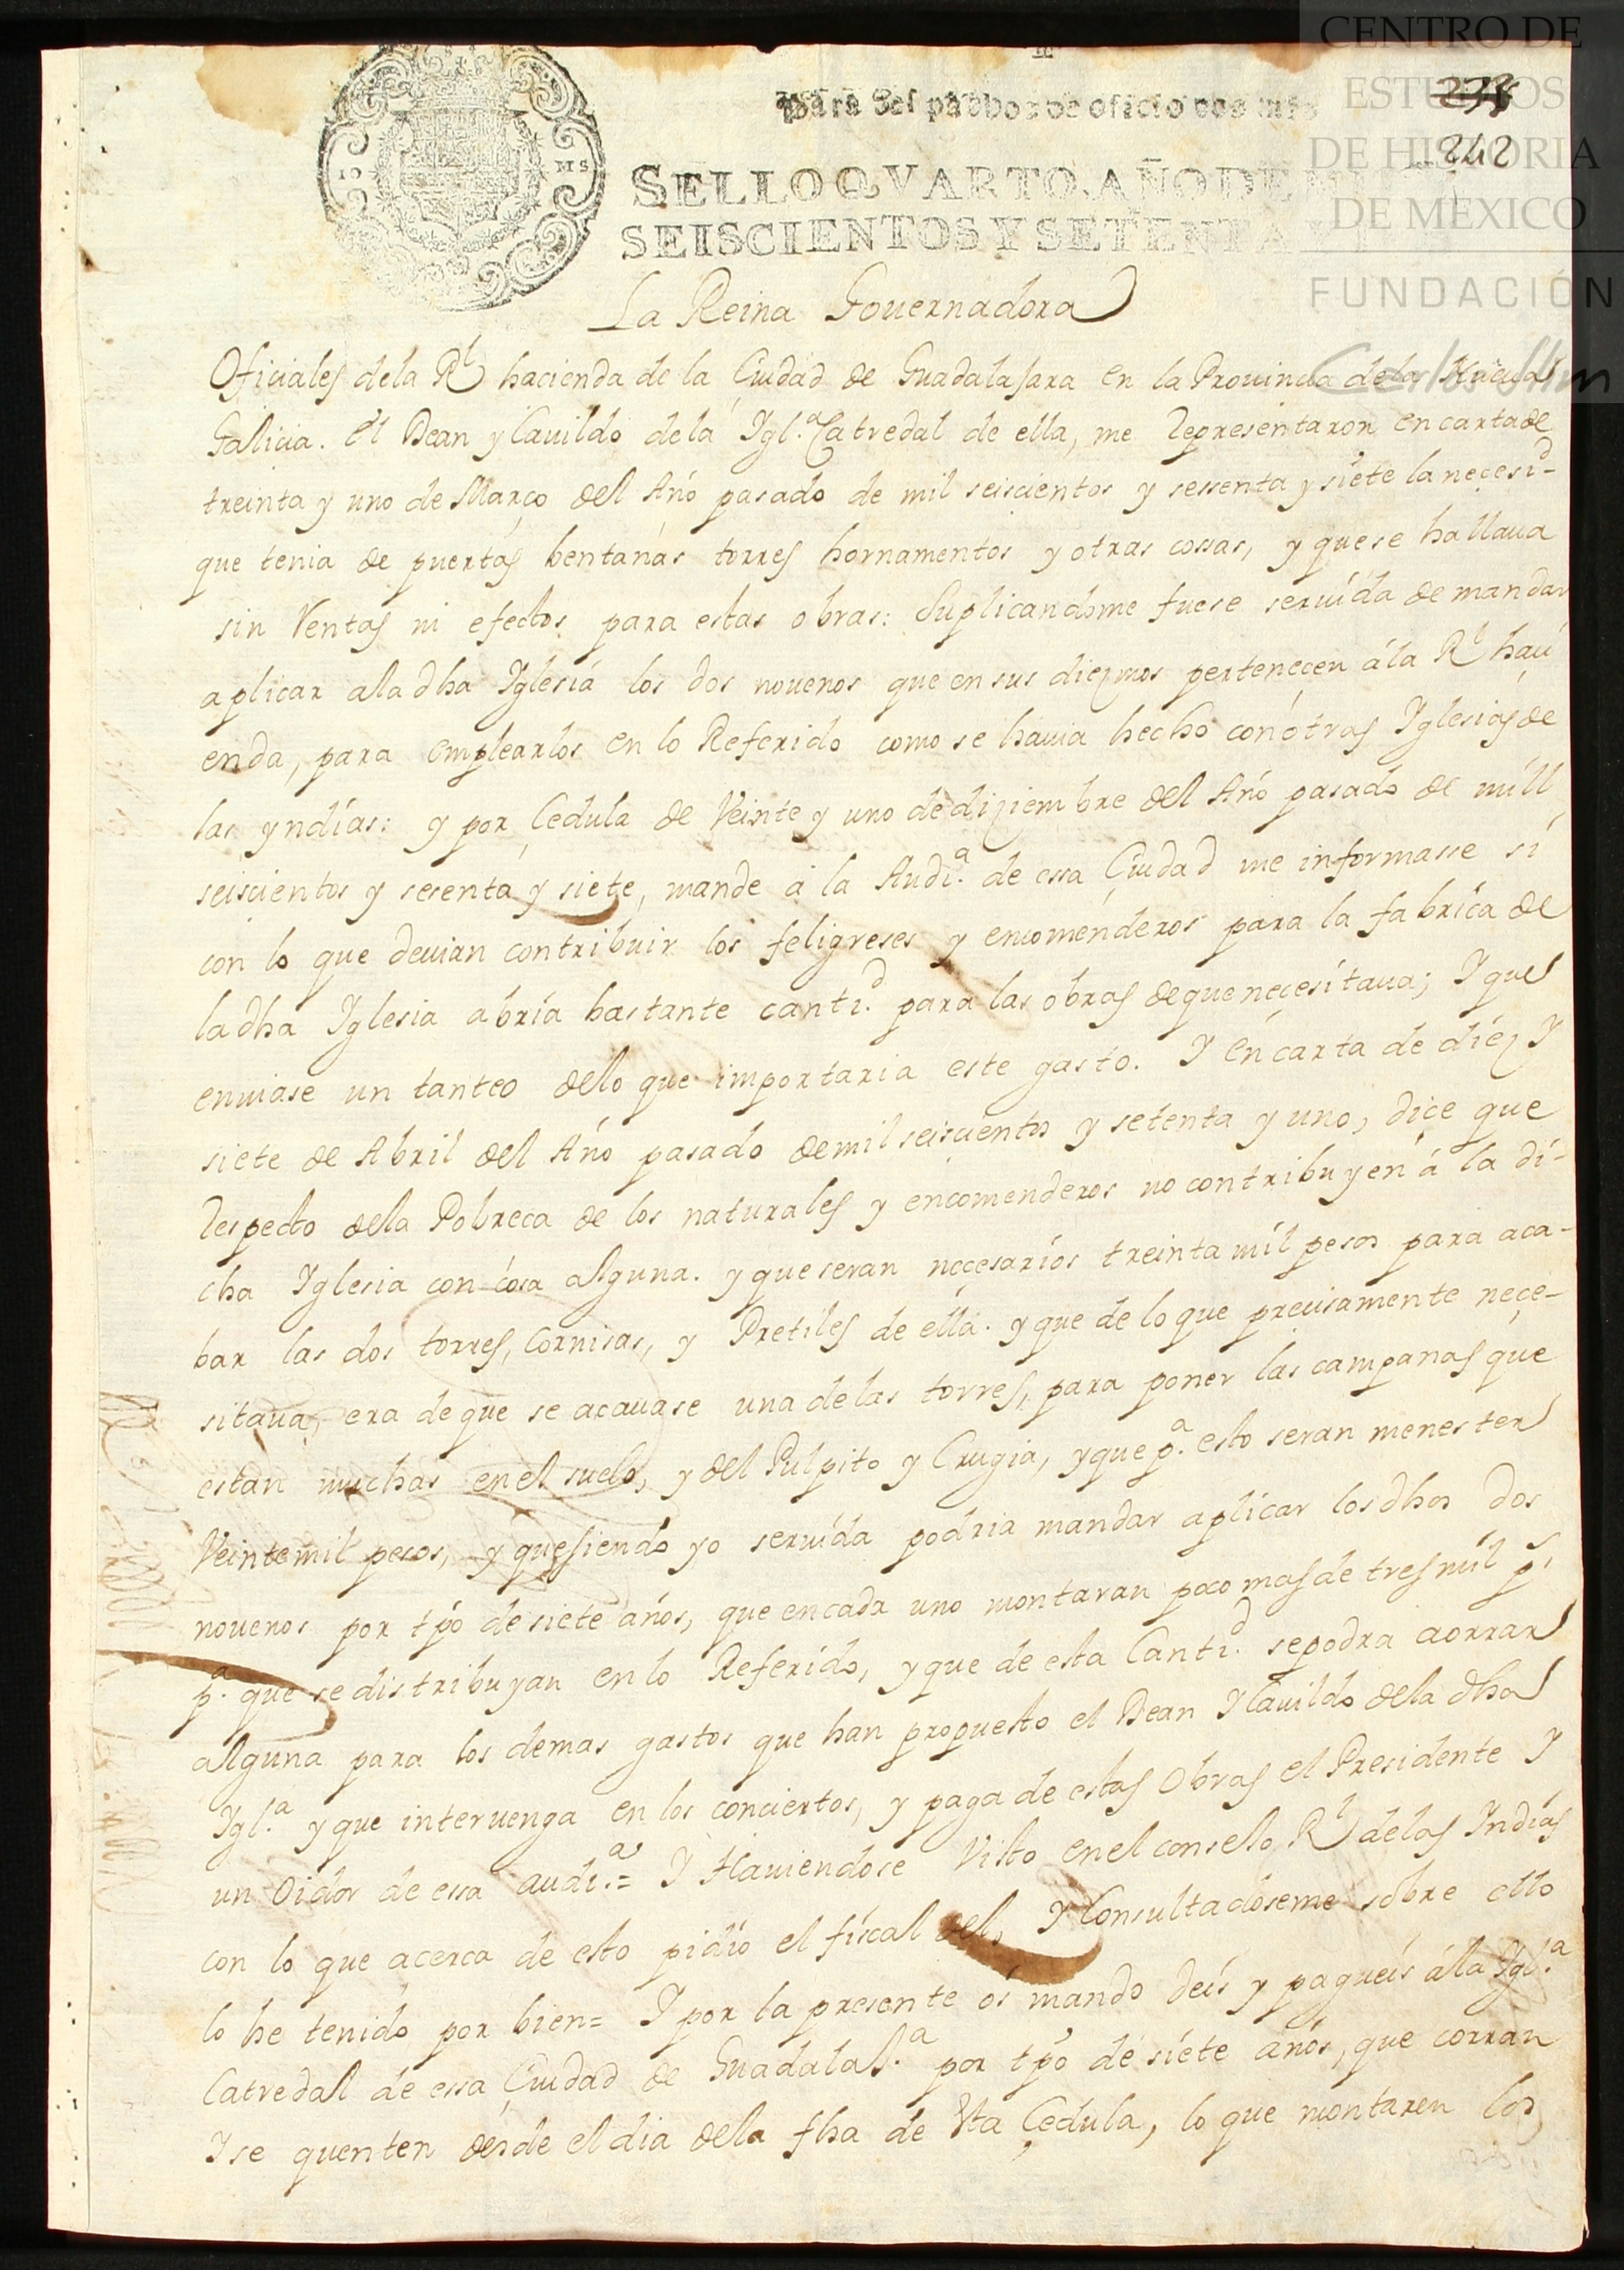 CENTRO DE
ESTUDIOS
DE HISTORIA
DE MEXICO
FUNDACIÓN
Carlos Slim
242
Para despachos de oficio dos mrs
SELLO QVARTO, AÑO DE MIL
SEISCIENTOS Y SETENTA
La Reina Gouernadora
Oficiales de la Rl hacienda de la Ciudad de Guadalajara en la Prouincia de la Nueua
Galicia. el Dean y Cauildo de la Igl.ª Catredal de ella, me Representaron en carta de
treinta y uno de Março del Año pasado de mil seiscientos y sessenta y siete la necesid
que tenia de puertas bentanas torres hornamentos y otras cossas, y que se hallaua
sin Rentas ni efectos para estas obras: Suplicandome fuese seruida de mandar
aplicar a la dha Iglesia los dos nouenos que en sus diezmos pertenecen á la Rl haci
enda, para emplearlos en lo Referido como se hauia hecho con otras Iglesias de
las yndias: y por Cedula de Veinte y uno de diziembre del Año pasado de mill
seiscientos y sesenta y siete, mande a la Audi.ª de essa Ciudad me informasse si
con lo que deuian contribuir los feligreses y encomenderos para la fabrica de
la dha Iglesia abria bastante canti.d para las obras de que necesitaua; Y que
enuiase un tanteo de lo que importaria este gasto. Y en carta de diez Y
siete de Abril del Año pasado de mil seiscientos y setenta y uno, dice que
Respecto de la Pobreca de los naturales y encomenderos no contribuyen á la di-
cha Iglesia con cosa alguna. y que seran necesarios treinta mil pesos para aca-
bar las dos torres, Cornisas, y Pretiles de ella. y que de lo que precisamente nece-
sitaua, era de que se acauase una de las torres, para poner las campanas que
estan muchas en el suelo, y del Pulpito y Crugia, y que p.ª esto seran menester
Veinte mil pesos, y que siendo yo seruida podria mandar aplicar los dhos dos
nouenos por tpo de siete años, que en cada uno montaran poco mas de tres mil ps
p.ª que se distribuyan en lo Referido, y que de esta Canti.d se podra aorrar
alguna para los demas gastos que han propuesto el Dean Y Cauildo de la dha
Igl.ª y que interuenga en los conciertos, y paga de estas Obras el Presidente Y
un Oidor de essa audi.ª = Y Hauiendose Visto en el conseJo Rl de las Indias
con lo que acerca de esto pidio el fiscal del, Y Consultadoseme sobre ello
lo he tenido por bien = Y por la presente os mando deis y pagueis á la Igl.ª
Catredal de essa Ciudad de GuadalaJ.ª por tpo de siete años, que corran
Y se quenten desde el dia de la fha de Esta Cedula, lo que montaren los